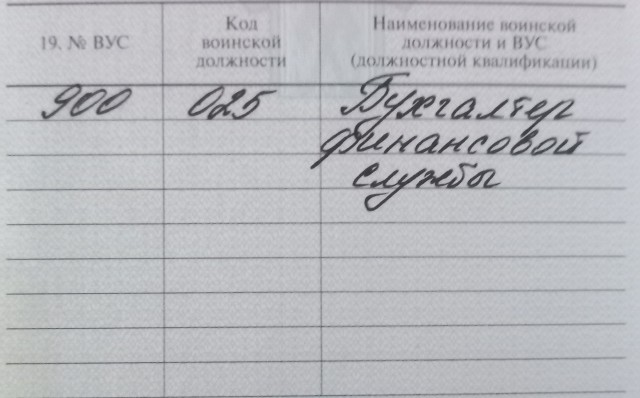 19. № ВУС
Код
воинской
должности
Наименование воинской
должности и ВУС
(должностной квалификации)
900 025 Бухгалтер
финансовой
службы